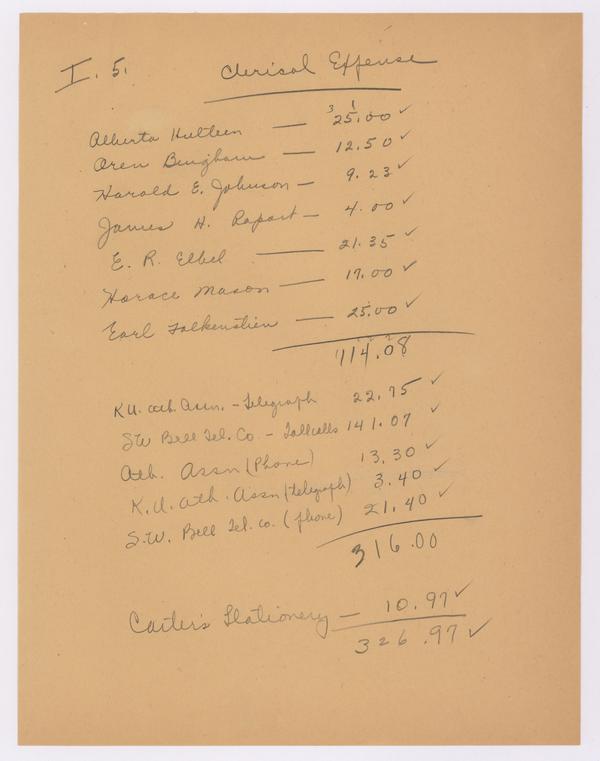 I. 5. Clerical Expense
3 1
Alberta Hulteen — 25.00 ✓
Oren Bingham — 12.50 ✓
Harold E. Johnson — 9.23 ✓
James H. Rapart — 4.00 ✓
E. R. Elbel — 21.35 ✓
Horace Mason — 17.00 ✓
Earl Falkenstien — 25.00 ✓
114.08
K.U. Ath. Assn. - Telegraph 22.75 ✓
SW Bell Tel. Co - Tollcalls 141.07 ✓
Ath. Assn (Phone) 13.30 ✓
K.U. Ath. Assn (telegraph) 3.40 ✓
S.W. Bell Tel. Co. (phone) 21.40 ✓
316.00
Carter's Stationery — 10.97 ✓
326.97 ✓